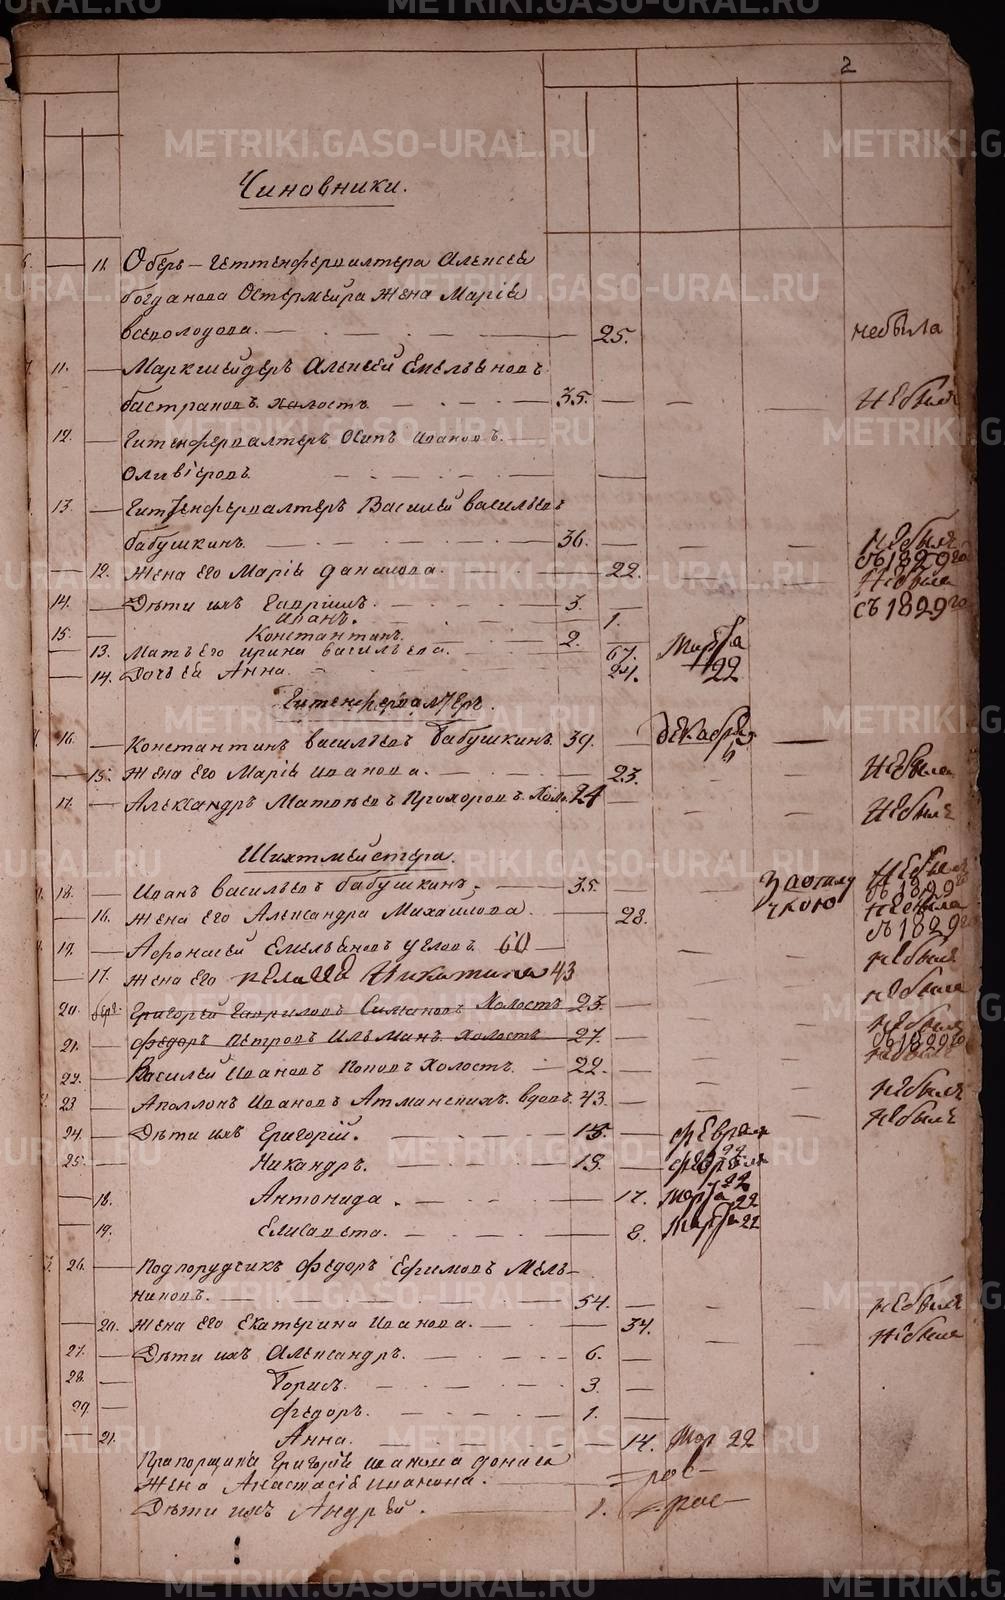 2
Чиновники.
11. Оберъ-Гиттенфервалтера Алексея
Богданова Остермейра жена Марія
Всеволодова. 25. небыла
11. Маркшейдеръ Алексей Емельяновъ
Бастрыковъ. холостъ 35. небылъ
12. Гитенфервалтеръ Осипъ Ивановъ
Оливіеровъ.
13. Гиттенфервалтеръ Василей Васильевъ
Бабушкинъ. 36. небылъ съ 1829го
12. Жена его Марія Данилова. 22. небыла
14. Дѣти ихъ Гавріилъ. 3. съ 1829го
Иванъ. 1.
15. Константинъ. 2.
13. Мать его Ирина Васильева. 67. Марта
14. Дочь ея Анна. 21. 22
Гитенфервалтеръ.
16. Константинъ Васильевъ Бабушкинъ. 39. декабря
15. Жена его Марія Иванова. 23. небыла
17. Александръ Матвѣевъ Прохоровъ. Холо. 24 небылъ
Шихтмейстера.
18. Иванъ Васильевъ Бабушкинъ. 35. небылъ съ 1829го
16. Жена его Александра Михайлова. 28. небыла съ 1829го
19. Афонасей Емельяновъ Угловъ 60 небылъ
17. Жена его Никитина 43 небыла
20. Григорей Гавриловъ Симановъ Холостъ 23. небылъ
21. Федоръ Петровъ Ильманъ. Холостъ 27. съ 1829го
22. Василей Ивановъ Поповъ Холостъ. 22. небылъ
23. Аполлонъ Ивановъ Атманскихъ. вдовъ. 43. небылъ
24. Дѣти ихъ Григорій. 15. февраля 22
25. Никандръ. 13. февраля 22
18. Антонида. 17. марта 22
19. Елисавета. 8. марта 22
26. Подпорутчикъ Федоръ Ефимовъ Мель-
никовъ. 54. небылъ
20. Жена его Екатерина Иванова. 34. небыла
27. Дѣти ихъ Александръ. 6.
28. Борисъ. 3.
29 Федоръ. 1.
21. Анна. 14. Мар 22
Прапорщика Григорія Иванова
Жена Анастасія Иванова.
Дѣти ихъ Андрей. 1.
METRIKI.GASO-URAL.RU